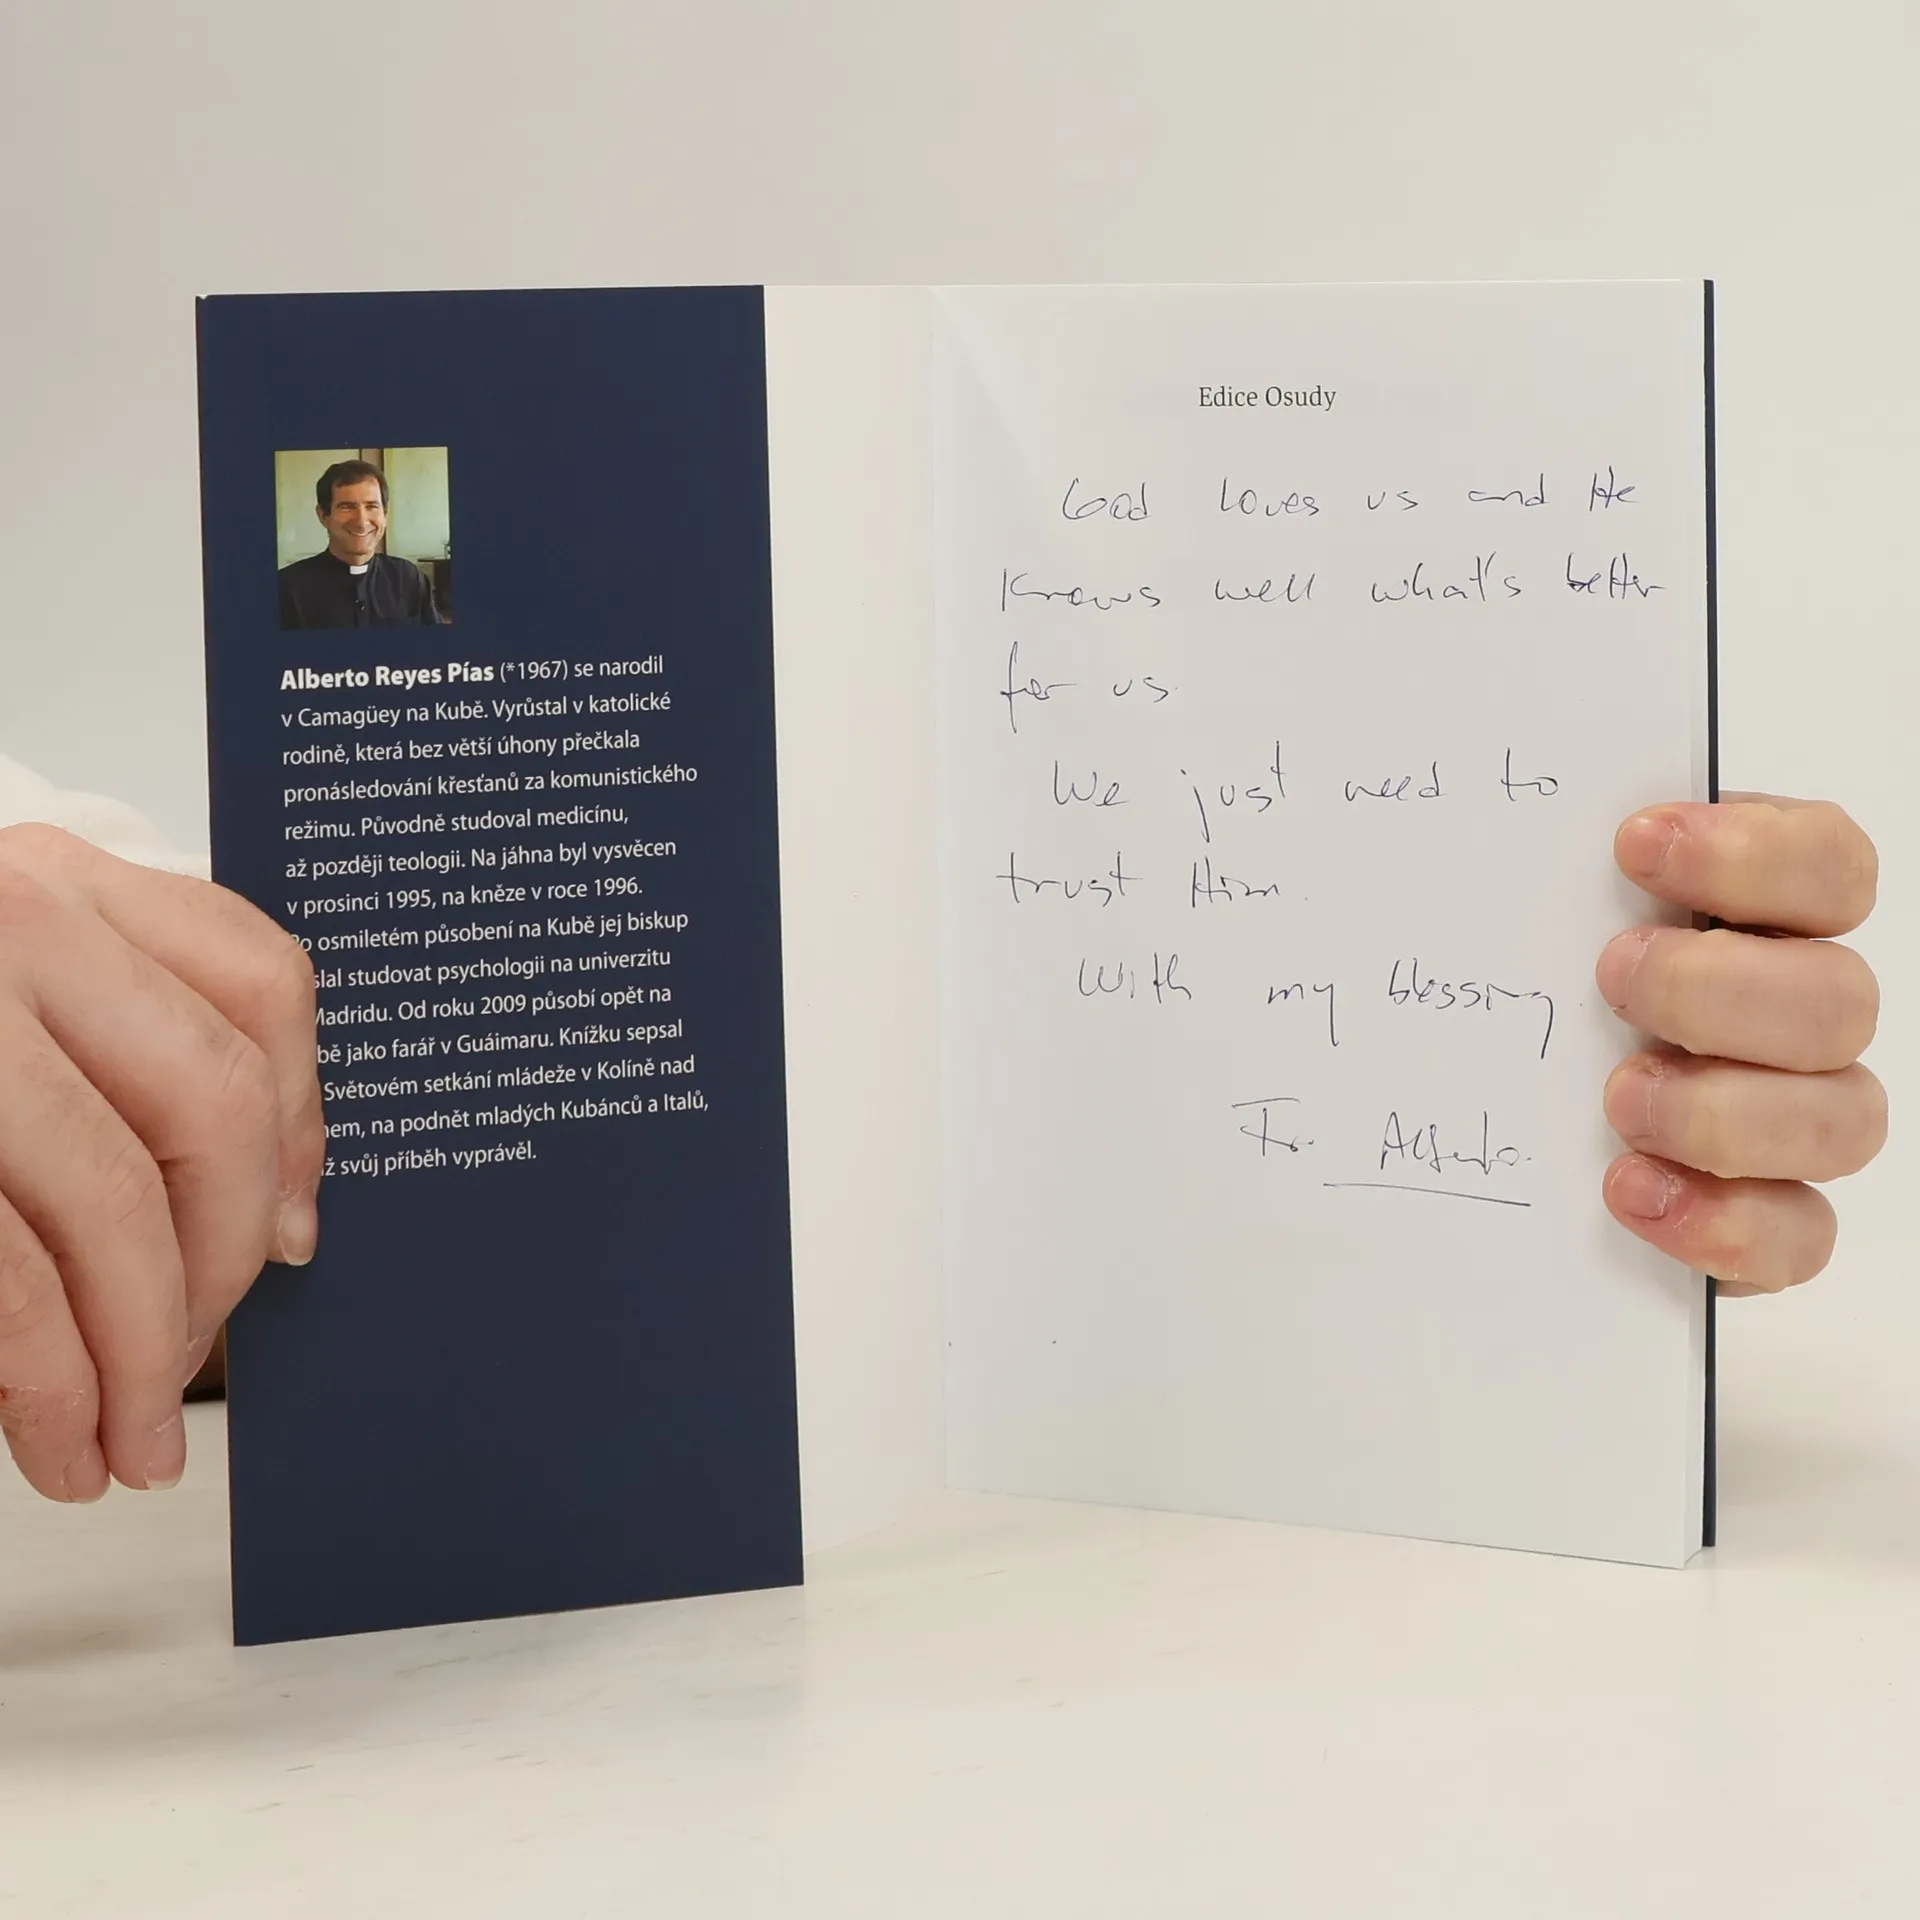 Alberto Reyes Pías (*1967) se narodil
v Camagüey na Kubě. Vyrůstal v katolické
rodině, která bez větší úhony přečkala
pronásledování křesťanů za komunistického
režimu. Původně studoval medicínu,
až později teologii. Na jáhna byl vysvěcen
v prosinci 1995, na kněze v roce 1996.
osmiletém působení na Kubě jej biskup
studovat psychologii na univerzitu
Od roku 2009 působí opět na
jako farář v Guáimaru. Knížku sepsal
Světovém setkání mládeže v Kolíně nad
na podnět mladých Kubánců a Italů,
svůj příběh vyprávěl.
Edice Osudy
God loves us and He
knows well what's better
for us.
We just need to
trust Him.
With my blessing.
Fr. Alberto.